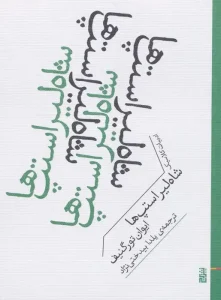 شاه‌لیر استپ‌ها
شاه‌لیر استپ‌ها
شاه‌لیر استپ‌ها
شاه‌لیر استپ‌ها
شاه‌لیر استپ‌ها
ایوان تورگنیف
ترجمه‌ی یلدا بیدختی‌نژاد